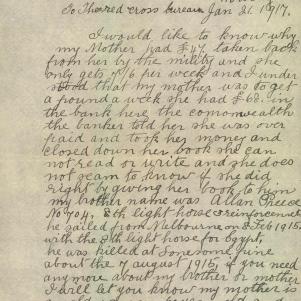 To the red cross bureau Jan 21. 1917.
I would like to know why
my Mother had £47 taken back
from her by the military and she
only gets 7/6 per week and I under
stood that my mother was to get
a pound a week she had £68. in
the bank here the comonwealth
the banker told her she was over
paid and took her money and
closed down her book she can
not read or write and she does
not seam to know if she did
right by giving her book to him
my brother name was Allan Preece
No 704. 8th light horse reinforcement
he sailed from Melbourne on 8 Feb 1915
with the 8th light horse for Egypt,
he was killed at Lonesome
about the 7 august 1915, if you need
any more about my brother or mother
I will let you know my mother is